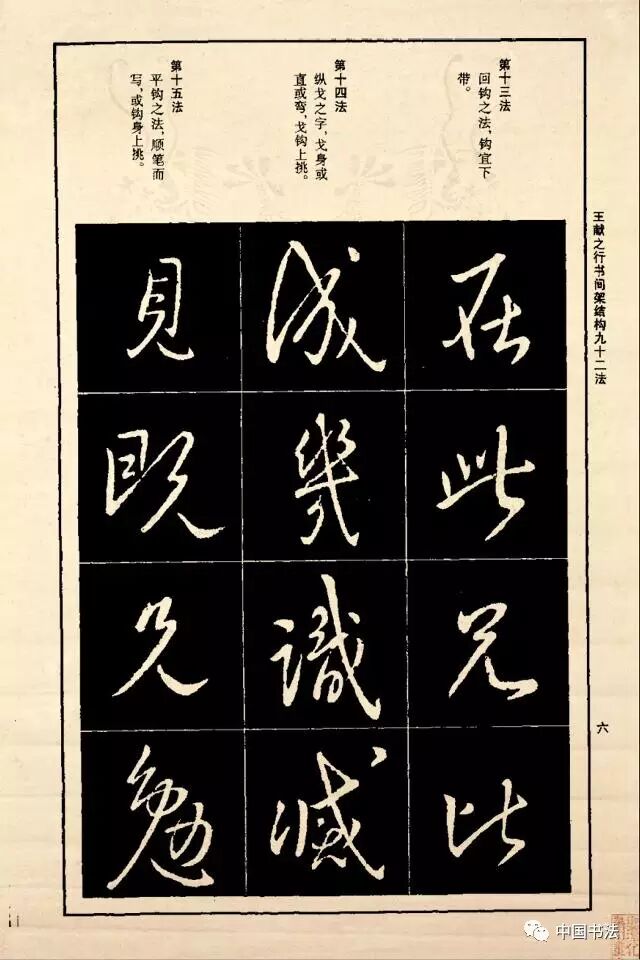 王献之行书间架结构九十二法
六
第十三法
回钩之法，钩宜下
带。
第十四法
纵戈之字，戈身或
直或弯，戈钩上挑。
第十五法
平钩之法，顺笔而
写，或钩身上挑。
此兄比
成幾識減
見既勉
中国书法